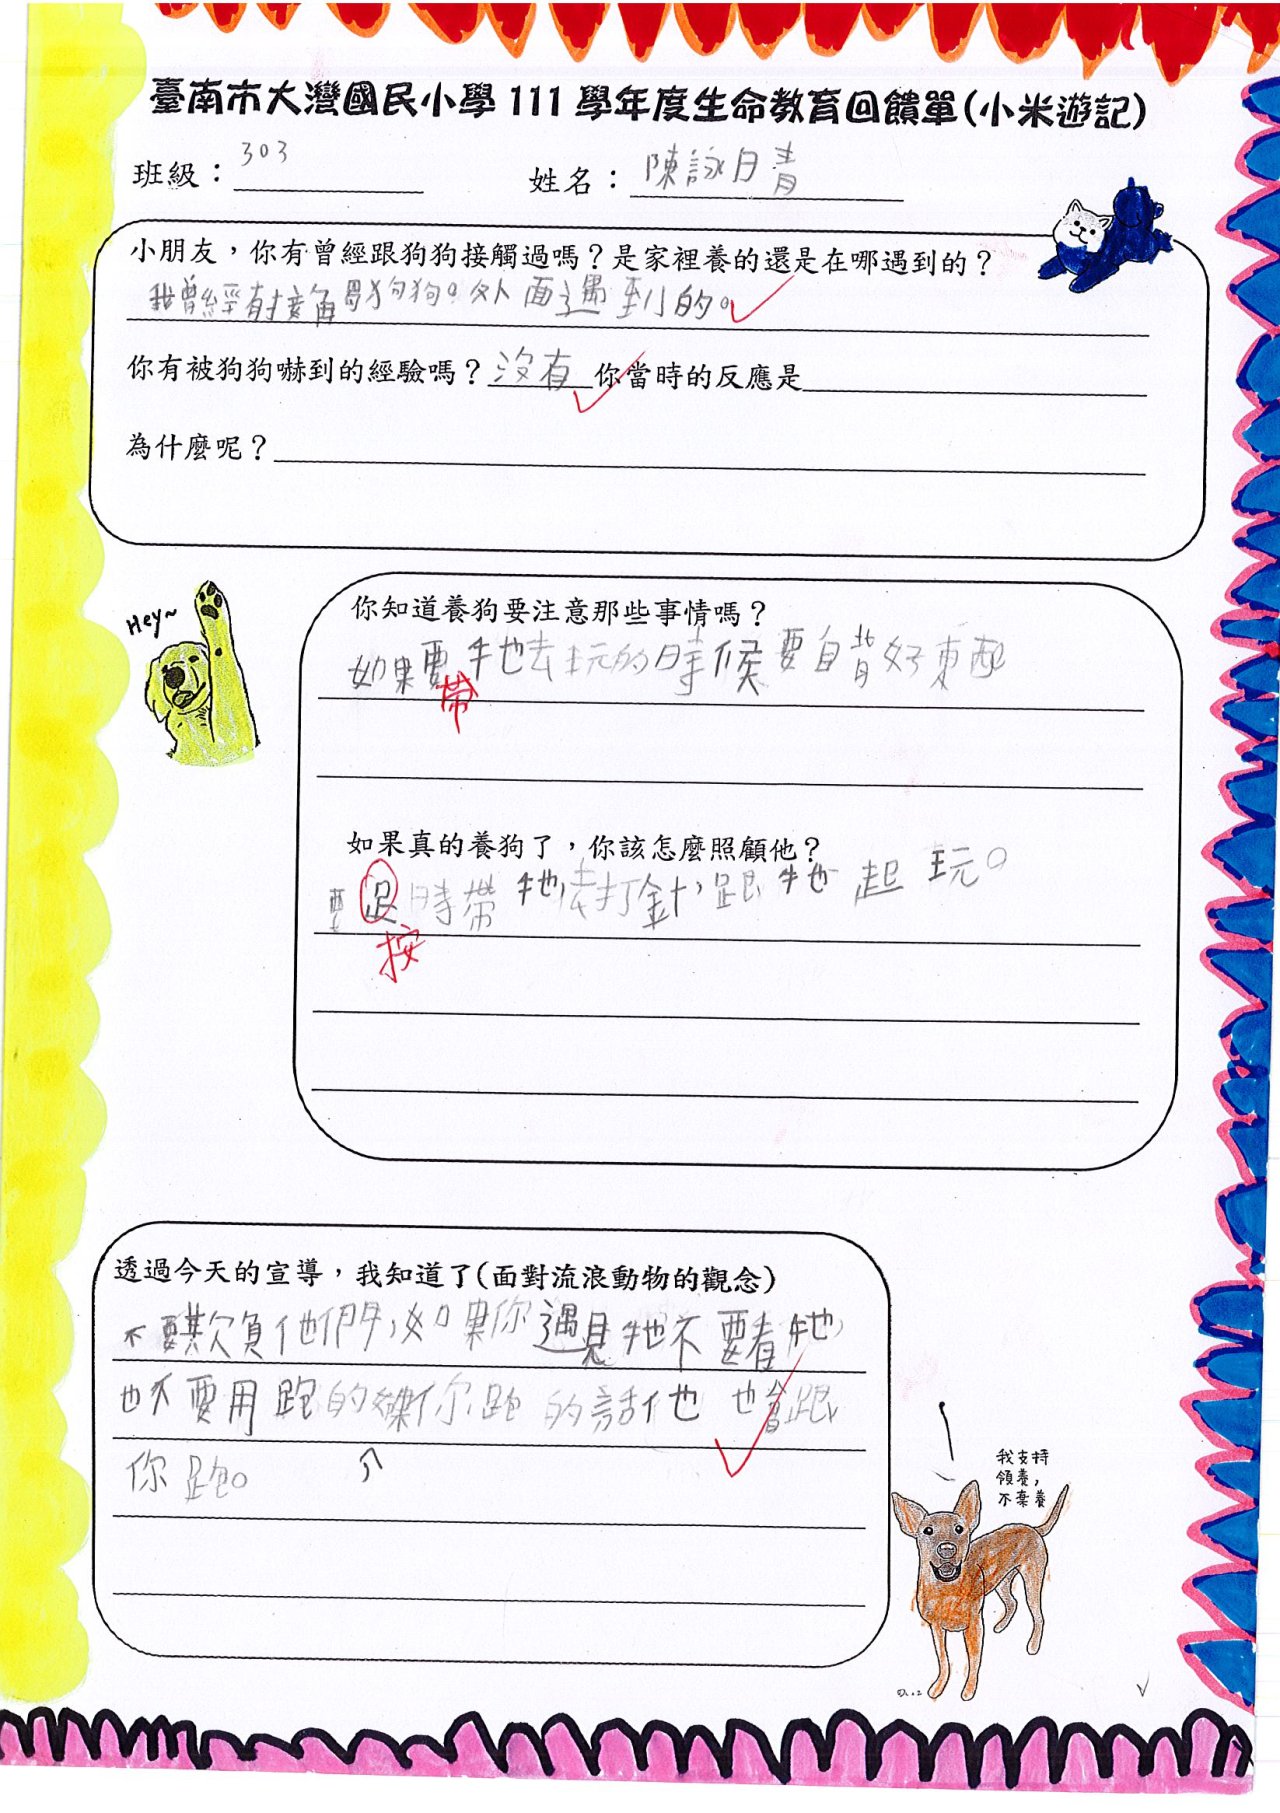 臺南市大灣國民小學111學年度生命教育回饋單(小米遊記)
班級：303 姓名：陳詠晴
小朋友，你有曾經跟狗狗接觸過嗎？是家裡養的還是在哪遇到的？
我曾經有接觸狗狗。外面遇到的。
你有被狗狗嚇到的經驗嗎？沒有 你當時的反應是
為什麼呢？
Hey~
你知道養狗要注意那些事情嗎？
如果要牠去玩的時候要自背好東西
帶
如果真的養狗了，你該怎麼照顧他？
要 時帶牠去打針，跟牠起玩。
按
透過今天的宣導，我知道了(面對流浪動物的觀念)
不要欺負他們，如果你遇見牠不要看牠，
也不要用跑的 你跑的話他也會跟
你跑。
我支持
領養，
不棄養